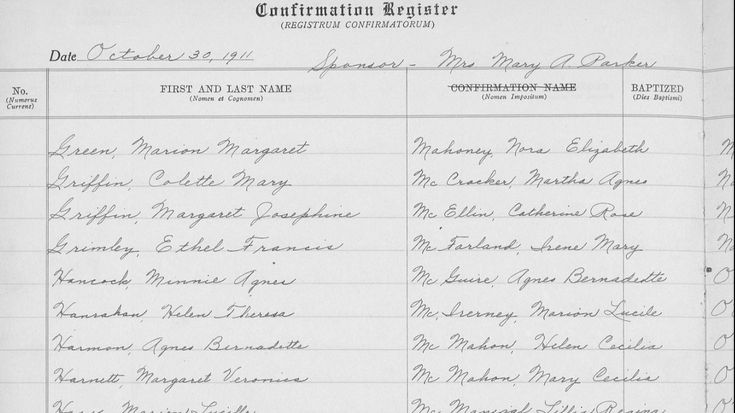 Confirmation Register
(REGISTRUM CONFIRMATORUM)
Date October 30, 1911
Sponsor - Mrs Mary A. Parker
No. FIRST AND LAST NAME CONFIRMATION NAME BAPTIZED
(Numerus Currens) (Nomen et Cognomen) (Nomen Impositum) (Dies Baptismi)
Green, Marion Margaret Mahoney, Nora Elizabeth
Griffin, Colette Mary Mc Crocker, Martha Agnes
Griffin, Margaret Josephine Mc Ellin, Catherine Rose
Grimley, Ethel Francis Mc Farland, Irene Mary
Hancock, Minnie Agnes Mc Guire, Agnes Bernadette
Hanrahan, Helen Theresa Mc, Marion Lucile
Harmon, Agnes Bernadette Mc Mahon, Helen Cecilia
Harnett, Margaret Veronica Mc Mahon, Mary Cecilia
Marion Lucille Lillis Regina